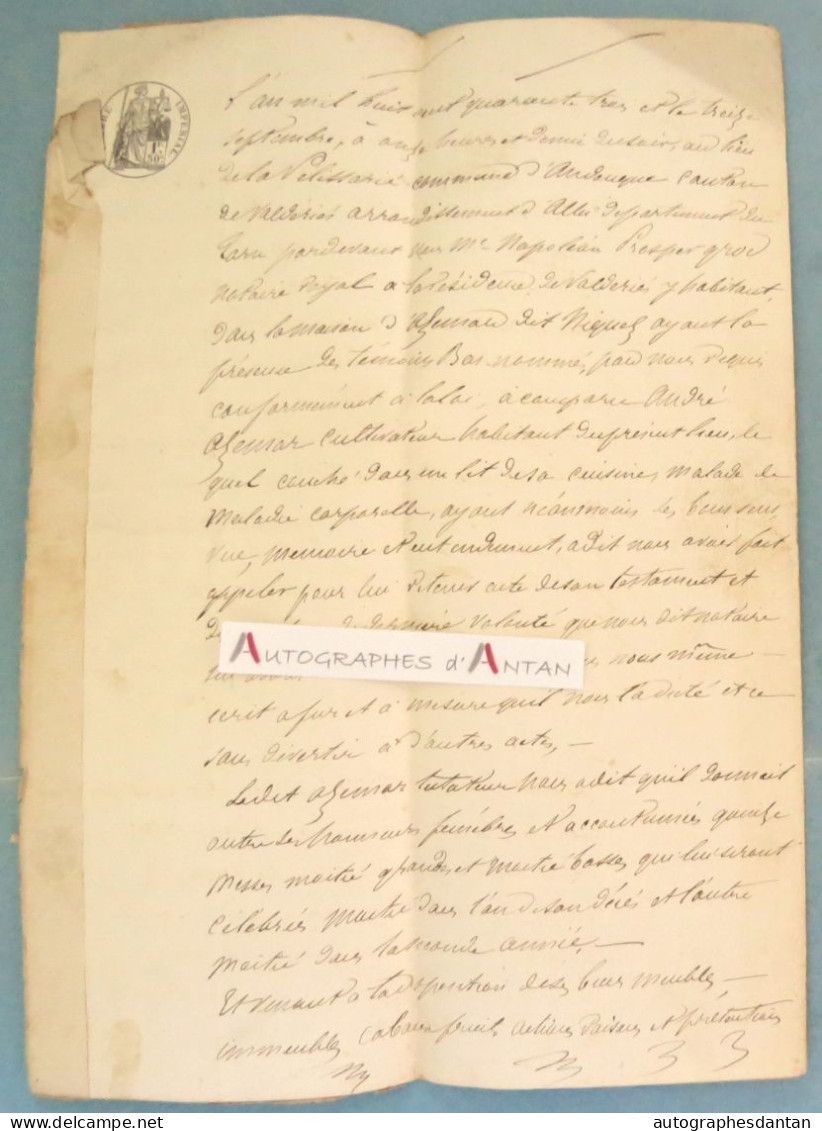 TIMBRE IMPERIAL
1F 50C
L'an mil huit cent quarante trois et le treize
septembre, à onze heures et demie du soir, au lieu
de la Pelissarié commune d'Andouque canton
de Valderiés arrondissement d'Albi département du
Tarn pardevant nous Me Napoléon Prosper
notaire royal à la résidence de Valderiés y habitant,
dans la maison d'Azemar dit Niquel ayant la
présence des témoins Bas nommés, par nous requis
conformément à la loi, a comparu André
Azemar cultivateur habitant du présent lieu, le
quel couché dans un lit de sa cuisine, malade de
maladie corporelle, ayant néanmoins les bons sens,
vue, mémoire et entendement, a dit nous avoir fait
appeler pour lui retenir acte de son testament et
dernière volonté que nous dit notaire
nous même —
ecrit a fur et à mesure qu'il nous l'a dicté et ce
sans divertir à d'autres actes, —
Ledit Azemar testateur nous a dit qu'il donnait
outre les honneurs funèbres et accoutumés quinze
Messes moitié grandes et moitié basses qui lui seront
célébrées moitié dans l'an de son décés et l'autre
moitié dans la seconde année, —
Et venant à la disposition de ses biens meubles —
immeubles, cabaux fruits, actions raisons et prétentions
AUTOGRAPHES d'ANTAN
delcampe.net
autographesdantan